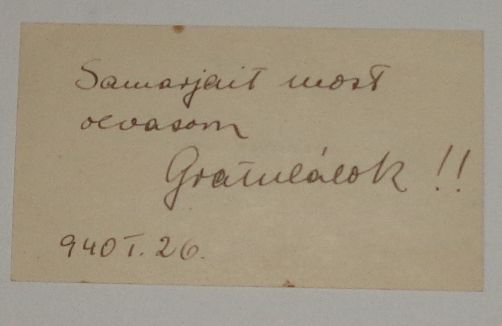 Samarjait most
olvasom
Gratulálok !!
940 I. 26.